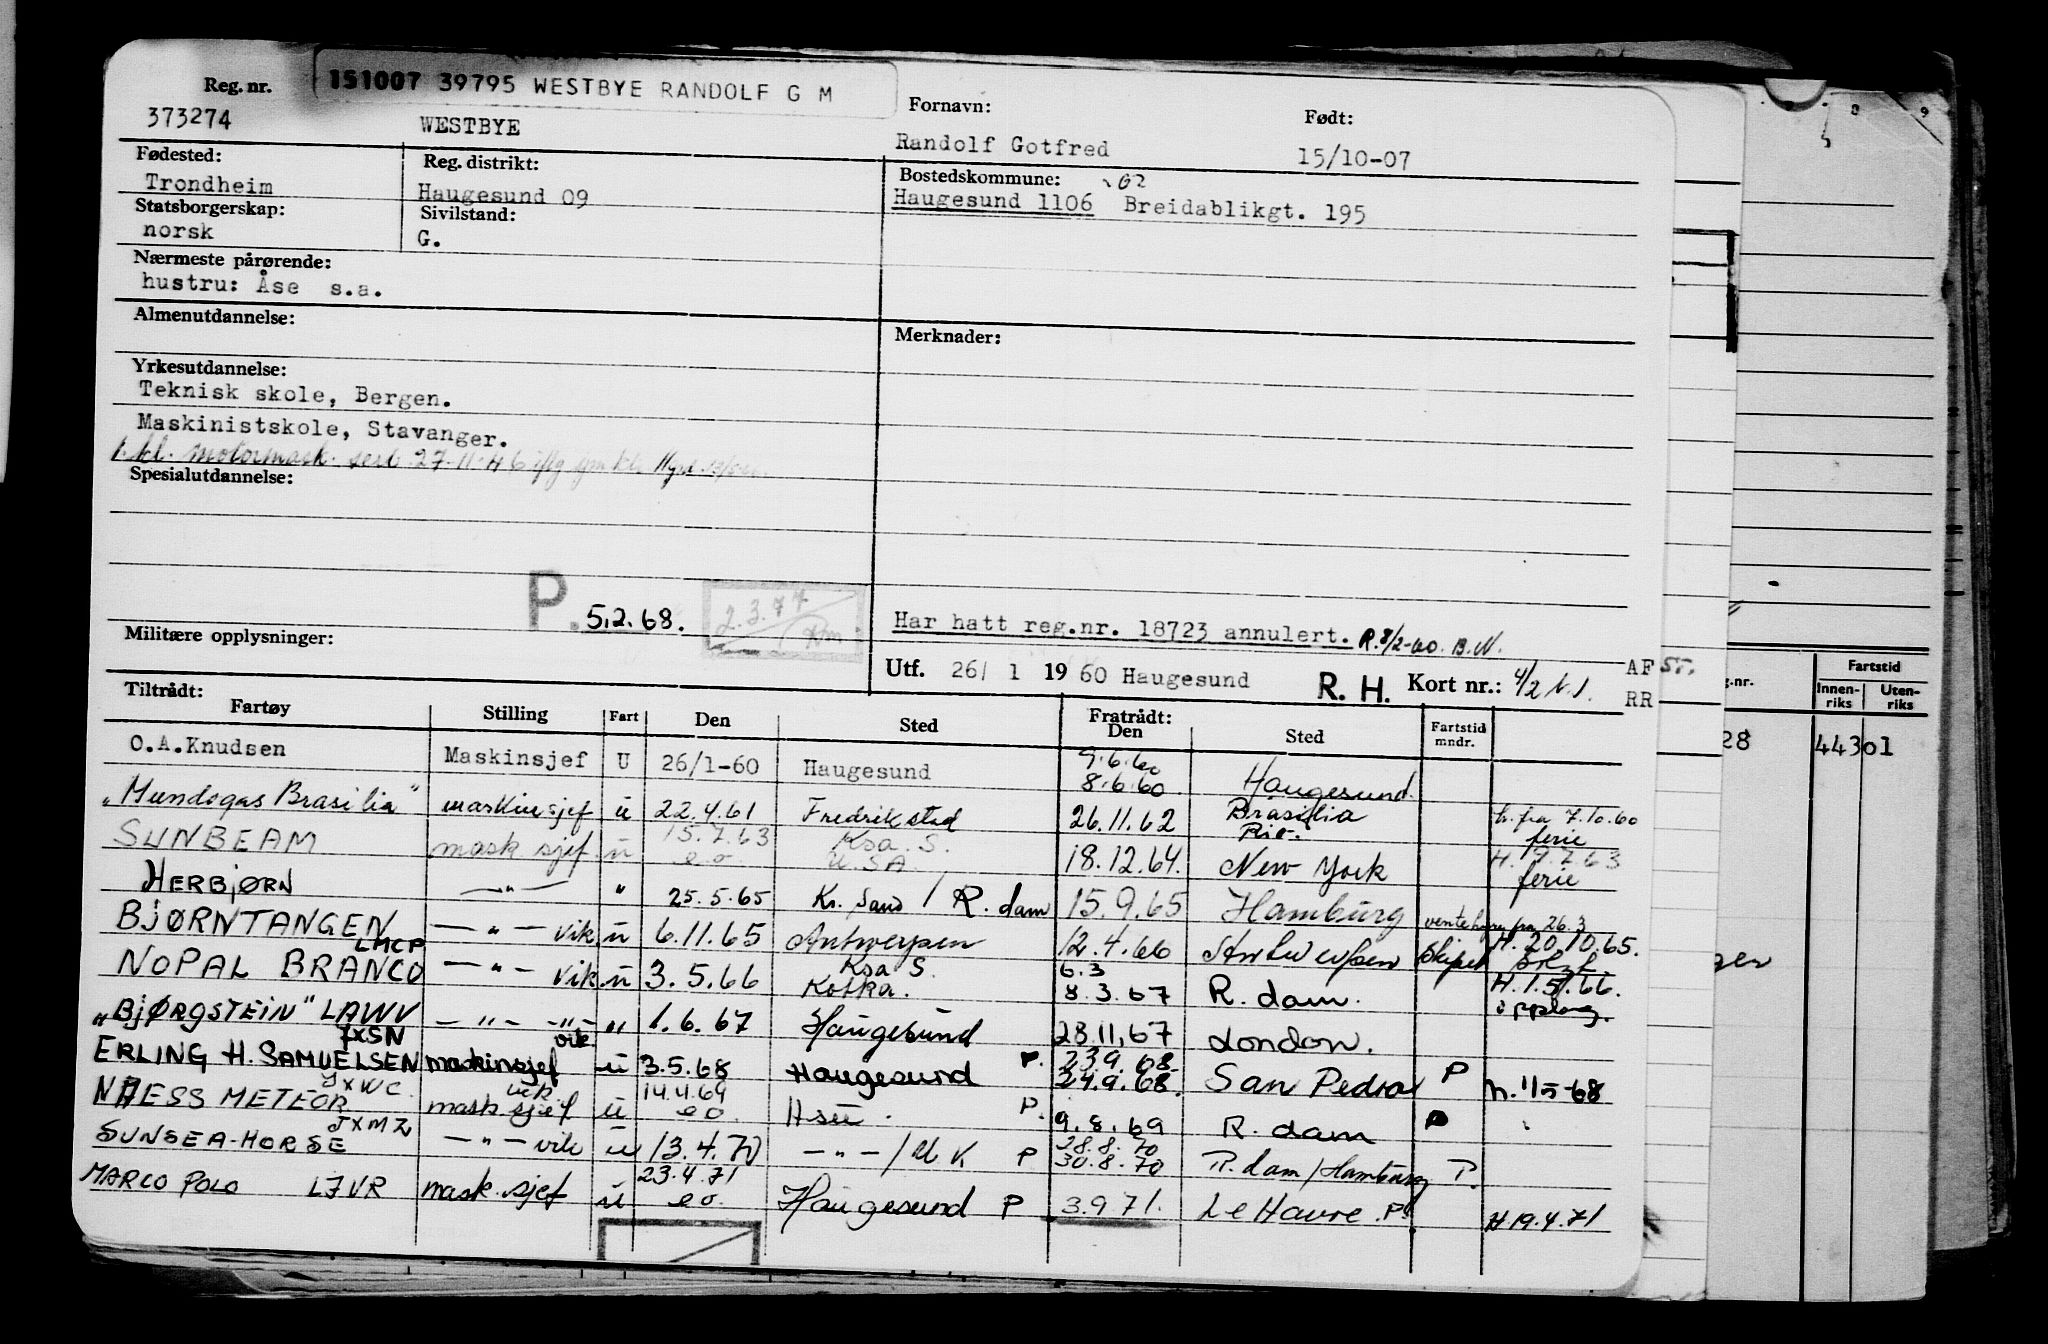 Reg. nr. 151007 39795 WESTBYE RANDOLF G M Fornavn: Født:
373274 WESTBYE Randolf Gotfred 15/10-07
Fødested: Reg. distrikt: Bostedskommune:
Trondheim Haugesund 09 Haugesund 1106 Breidablikgt. 195
Statsborgerskap: Sivilstand:
norsk G.
Nærmeste pårørende:
hustru: Åse s.a.
Almenutdannelse: Merknader:
Yrkesutdannelse:
Teknisk skole, Bergen.
Maskinistskole, Stavanger.
1. kl. motormask. sert. 27-11-46
Spesialutdannelse:
P. 5.2.68. 2.3.77
Har hatt reg.nr. 18723 annulert. R.8/2-60. B.N.
Militære opplysninger:
Utf. 26/ 1 19 60 Haugesund R. H. Kort nr.: 4/2 AF 55.
RR
Tiltrådt: Fratrådt:
Fartøy Stilling Fart Den Sted Den Sted Fartstid mndr.
O.A.Knudsen Maskinsjef U 26/1-60 Haugesund 9.6.60 8.6.60 Haugesund
"Mundogas Brasilia" maskinsjef u 22.4.61 Fredrikstad 26.11.62 Brasilia Rio. h. fra 7.10.60 ferie
SUNBEAM mask.sjef u 15.7.63 eo Ksa. S. USA. 18.12.64. New York ferie
HERBJØRN —"— " 25.5.65 Kr. sand / R. dam 15.9.65 Hamburg
BJØRNTANGEN —"— vik u 6.11.65 Antwerpen 12.4.66 Antwerpen H. 20.10.65.
NOPAL BRANCO LMCP —"— vik u 3.5.66 Ksa S. Kotka. 6.3 8.3.67 R. dam. H. 1.5.66.
"BJØRGSTEIN" LAWV —"— —"— " 1.6.67 Haugesund 28.11.67 London.
ERLING H. SAMUELSEN JXSN maskinsjef vik u 3.5.68 Haugesund P. 23.9.68. 24.9.68. San Pedro P h. 1/5-68
NÆSS METEOR JXWC mask sjef vik u 14.4.69 eo. Hsu. P. 9.8.69 R. dam P
SUNSEA-HORSE JXMZ —"— vik u 13.4.70 —"— / UK P 28.8.70 30.8.70 R.dam/Hamburg P.
MARCO POLO LJVR mask.sjef u 23.4.71 eo. Haugesund P 3.9.71. Le Havre. P. H 19.4.71
Fartstid
g.nr. Innen-riks Uten-riks
28 443 01